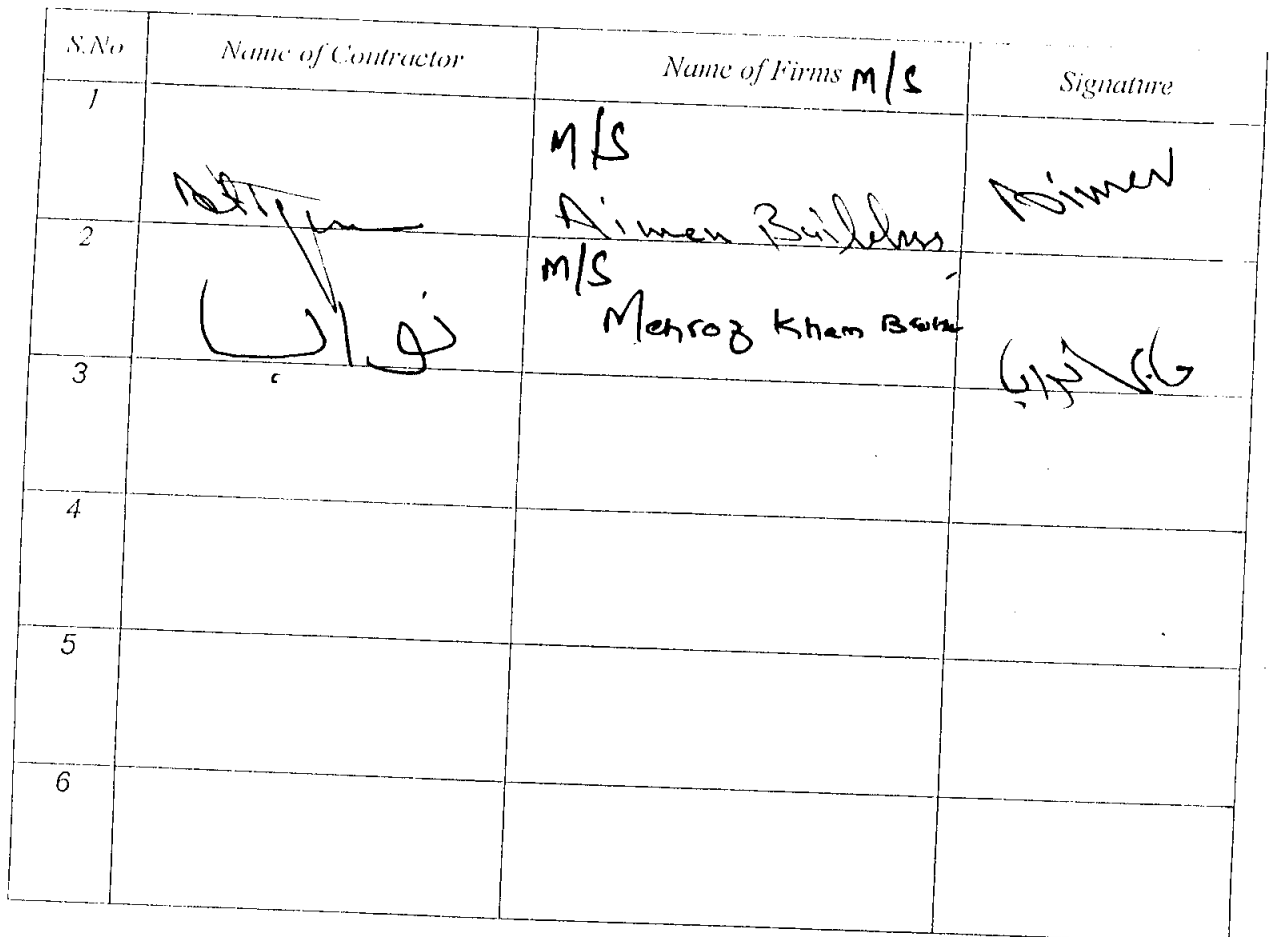 S.No Name of Contractor Name of Firms M/S Signature
1 M/S
Aimen Builders Aimen
2 نواب M/S
Mehroz Khan
3
4
5
6